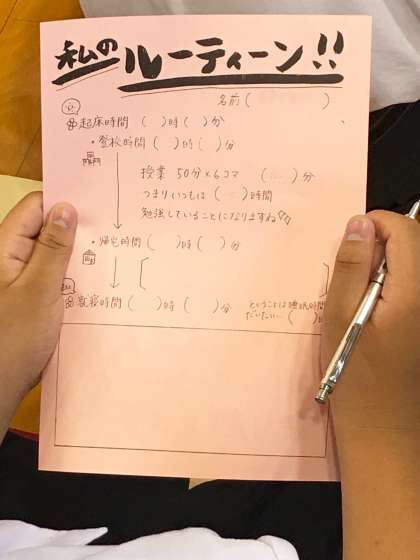 私のルーティーン!!
名前（　　　）
起床時間（　）時（　）分
・登校時間（　）時（　）分
授業 50分×6コマ（…）分
つまりいつもは（…）時間
勉強していることになりますね
・帰宅時間（　）時（　）分
就寝時間（　）時（　）分
ということは睡眠時間
だいたい…（　）